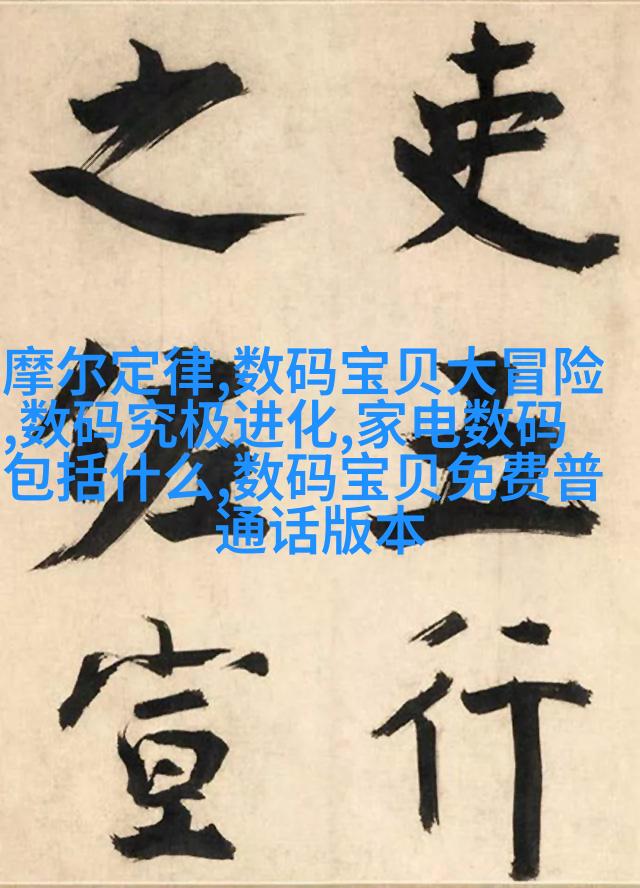 吏五行
之佐宣
摩尔定律,数码宝贝大冒险
,数码究极进化,家电数码
包括什么,数码宝贝免费普
通话版本